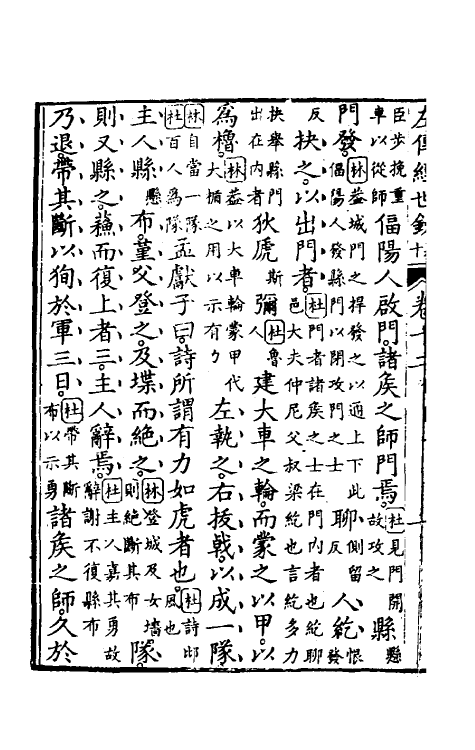 左傳經世鈔 卷十二
臣步挽重車以從師偪陽人啟門諸矦之師門焉杜見門開故攻之縣懸
門發林葢城門之捍發之以通上下此偪陽人發縣門以閉攻門之士聊側留反人紇恨發
反抉之以出門者杜門者諸矦之士在門內者也紇聊邑大夫仲尼父叔梁紇也言紇多力
抉舉縣門出在內者狄虒斯彌杜魯人建大車之輪而蒙之以甲以
為櫓林葢以大車輪蒙甲代大楯之用以示有力左執之右拔戟以成一隊
林自當一隊杜百人為隊孟獻子曰詩所謂有力如虎者也杜詩邶風也
主人縣懸布堇父登之及堞而絕之林登城及女墻則絕斷其布隊
則又縣之蘓而復上者三主人辭焉杜主人嘉其勇故辭謝不復縣布
乃退帶其斷以狥於軍三日杜帶其斷布以示勇諸矦之師久於